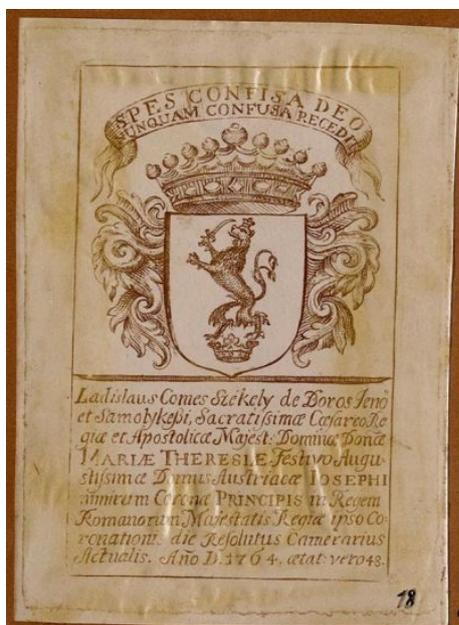 SPES CONFISA DEO
NUNQUAM CONFUSA RECEDIT
Ladislaus Comes Székely de Boros Jenő
et Samolykeßi, Sacratissimæ Cæsareo Re
giæ et Apostolicæ Majest: Dominæ Donæ
MARIÆ THERESIÆ Festivo Augu-
stissimæ Domus Austriacæ IOSEPHI
nimirum Coronæ PRINCIPIS in Regem
Romanorum Majestatis Regiæ ipso Co-
ronationis die Resolutus Camerarius
Actualis. Año D. 1764. ætat: vero 48.
18